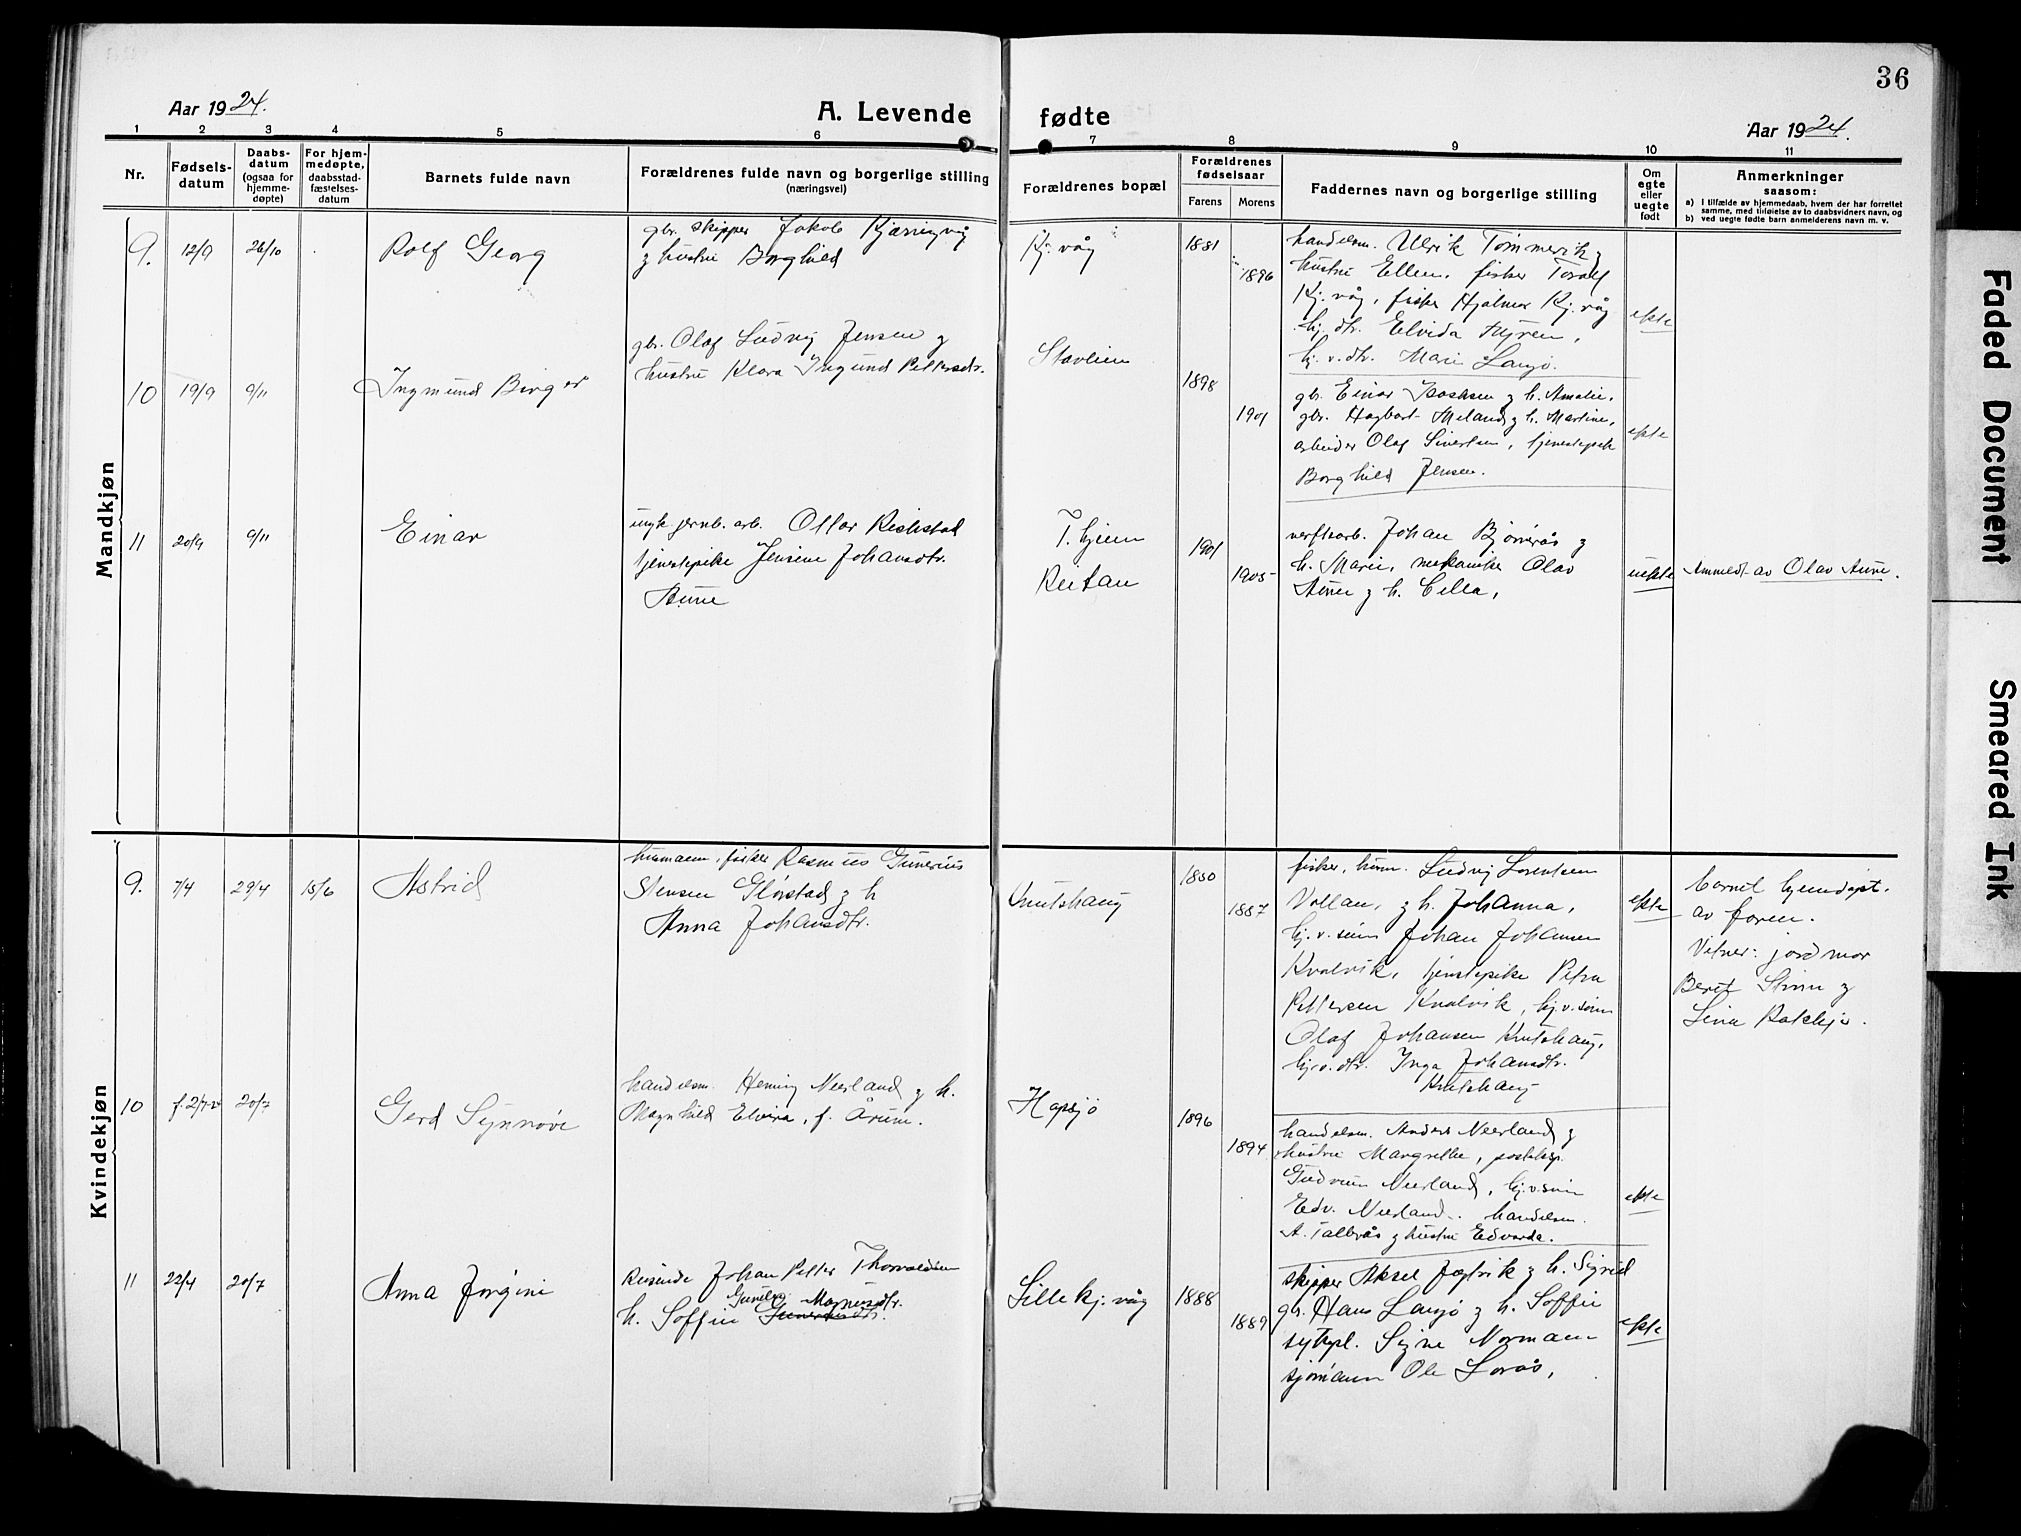 36
Aar 1924.
A. Levende fødte
Aar 1924.
1 2 3 4 5 6 7 8 9 10 11
Nr.
Fødsels-
datum
Daabs-
datum
(ogsaa for
hjemme-
døpte)
For hjem-
medøpte,
daabsstad-
fæstelses-
datum
Barnets fulde navn
Forældrenes fulde navn og borgerlige stilling
(næringsvei)
Forældrenes bopæl
Forældrenes
fødselsaar
Farens Morens
Faddernes navn og borgerlige stilling
Om
egte
eller
uegte
født
Anmerkninger
saasom:
a) I tilfælde av hjemmedaab, hvem der har forrettet
samme, med tilføielse av to daabsvidners navn, og
b) ved uegte fødte barn anmelderens navn m. v.
Mandkjøn
9. 12/9 26/10
Rolf Georg
gbr. skipper Jakob Kjærringvåg
og hustru Borghild
Kj. våg
1881
1896
handelsm. Ulrik Tømmervik og
hustru Ellen, fisker Toralf
Kj. våg, fisker Hjalmar Kj. våg
hj. dtr. Elvida Myren,
hj. v. dtr. Marie Lansjø.
ekte
10 19/9 9/11
Ingmund Birger
gbr. Olaf Ludvig Jensen og
hustru Klara Ingund Pettersdtr.
Stavlien
1898
1901
gbr. Einar Isaksen og h. Amalie,
gbr. Hagbart Meland og h. Martine,
arbeider Olaf Sivertsen, tjenestepike
Borghild Jensen.
ekte
11 20/9 9/11
Einar
ungk. jernb. arb. Ottar Reitstad
tjenestepike Jensine Johansdtr.
Aune
T. hjem
Reitan
1901
1905
verftsarb. Johan Bjørnrås og
h. Marie, mekaniker Olav
Aune og h. Cella,
uekte
Anmeldt av Olav Aune.
Kvindekjøn
9. 7/4 29/4 15/6
Astrid
husmann, fisker Rasmus Gunerius
Stensen Glørstad og h
Anna Johansdtr.
Knutshaug
1880
1887
fisker, husm. Ludvig Lorentsen
Vollan, og h. Johanna,
hj. v. sønn Johan Johansen
Kvalvik, tjenestepike Petra
Pettersen Kvalvik, hj. v. sønn
Olaf Johansen Knutshaug,
hj. v. dtr. Inga Johansdtr.
Knutshaug
ekte
barnet hjemdøpt
av faren.
Vitner: jordmor
Beret Strøm og
Lina
10 20/7
Gerd Synnøve
handelsm. Heming Neerland og h.
Magnhild Elvira, f. Årum.
Hopsjø
1896
1894
handelsm. Anders Neerland og
hustru Margrethe, posteksp.
Gudrun Neerland, hj. v. sønn
Edv. Neerland. handelsm.
A. Tallerås og hustru Edvarda.
ekte
11 22/4 20/7
Anna Jørgine
Reisende Johan Petter Thorvaldsen
h. Soffie Gunelie Magnusdtr.
Lille kj. våg
1888
1889
skipper Aksel Jægtvik og h. Sigrid
gbr. Hans Lansjø og h. Soffie
Signe Normann
sjømann Ole Sørås,
ekte
Faded Document
Smeared Ink